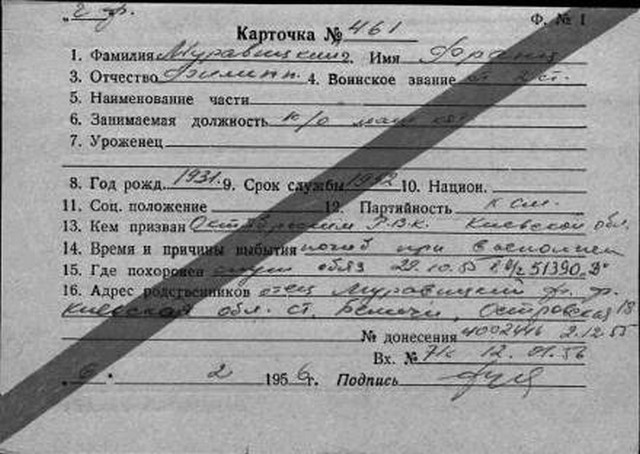 Ф. № 1
Карточка № 461
1. Фамилия Муравицкий 2. Имя Франц
3. Отчество Филипп. 4. Воинское звание ст. 2 ст.
5. Наименование части
6. Занимаемая должность к/о
7. Уроженец
8. Год рожд. 1931 9. Срок службы 1952 10. Национ.
11. Соц. положение 12. Партийность к см.
13. Кем призван РВК. Киевской обл.
14. Время и причины выбытия погиб при исполнен
15. Где похоронен служ обяз 29.10.55 в/ч 51390 „В"
16. Адрес родственников отец Муравицкий ф. ф.
Киевская обл. ст. Беличи, Островская 18
№ донесения 4002446 2.12.55
Вх. № 71с 12.01.56
„6" 2 1956г. Подпись